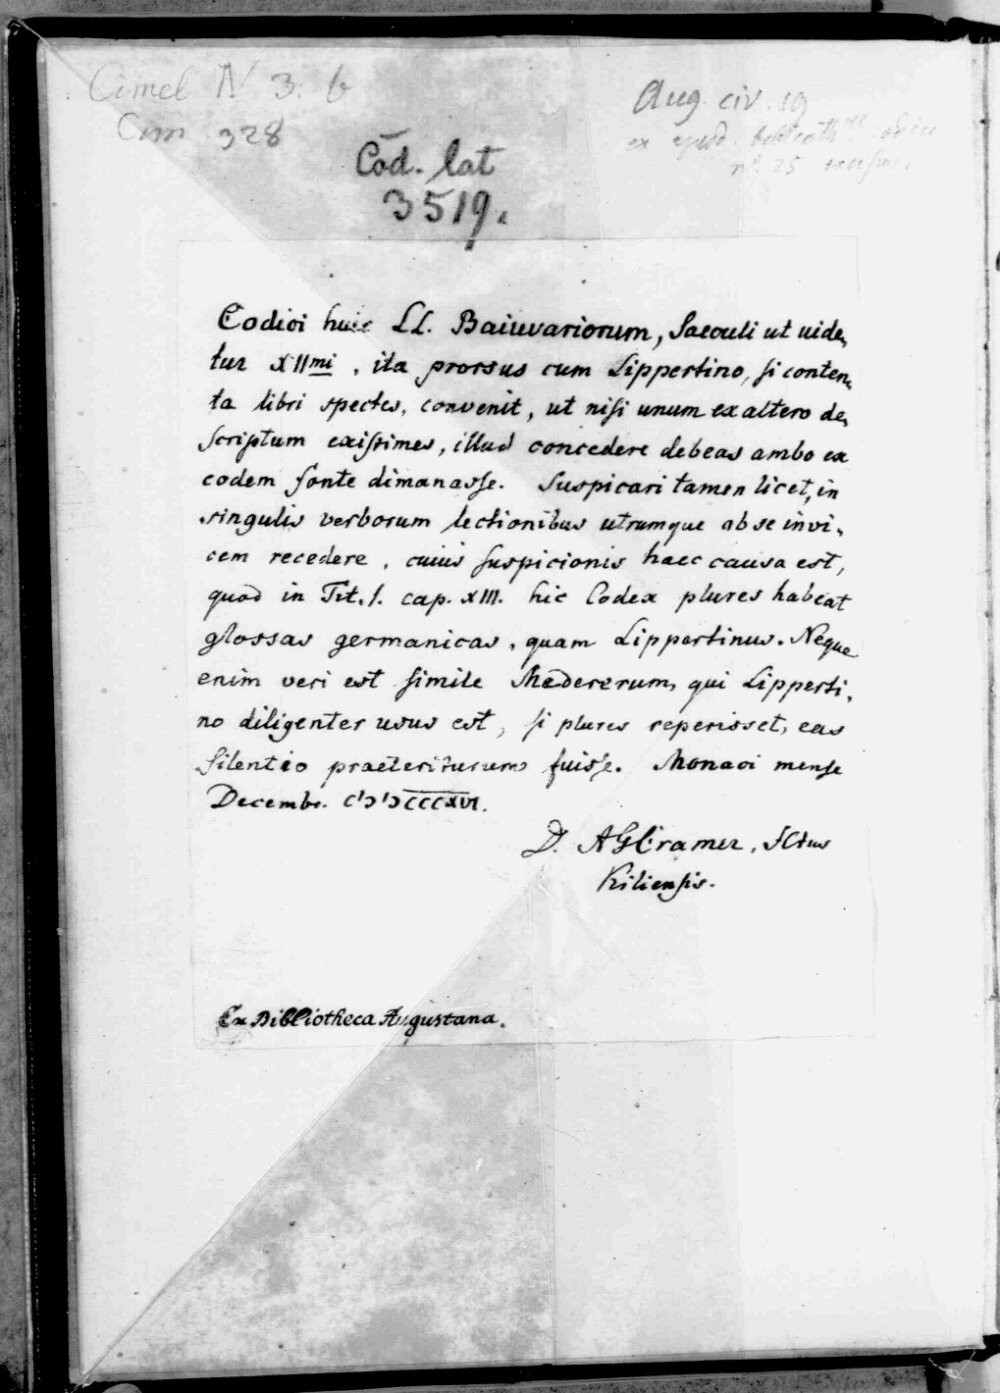 Cimel N 3. b
Cim 328
Aug. civ. 19
ex eiusd. biblioth. codice
nº. 25 excisus.
Cod. lat
3519.
Codici huic LL. Baiuvariorum, Saeculi ut uide,
tur XIImi, ita prorsus cum Lippertino, si conten,
ta libri spectes, convenit, ut nisi unum ex altero de,
scriptum existimes, illud concedere debeas ambo ex
eodem fonte dimanasse. Suspicari tamen licet, in
singulis verborum lectionibus utrumque ab se invi,
cem recedere, cuius suspicionis haec causa est,
quod in Tit. I. cap. XIII. hic Codex plures habeat
glossas germanicas, quam Lippertinus. Neque
enim veri est simile Medererum, qui Lipperti,
no diligenter usus est, si plures reperisset, eas
silentio praeteriturum fuisse. Monaci mense
Decembr. CIƆIƆCCCXVI.
D. AGCramer, JCtus
Kiliensis.
Ex Bibliotheca Augustana.